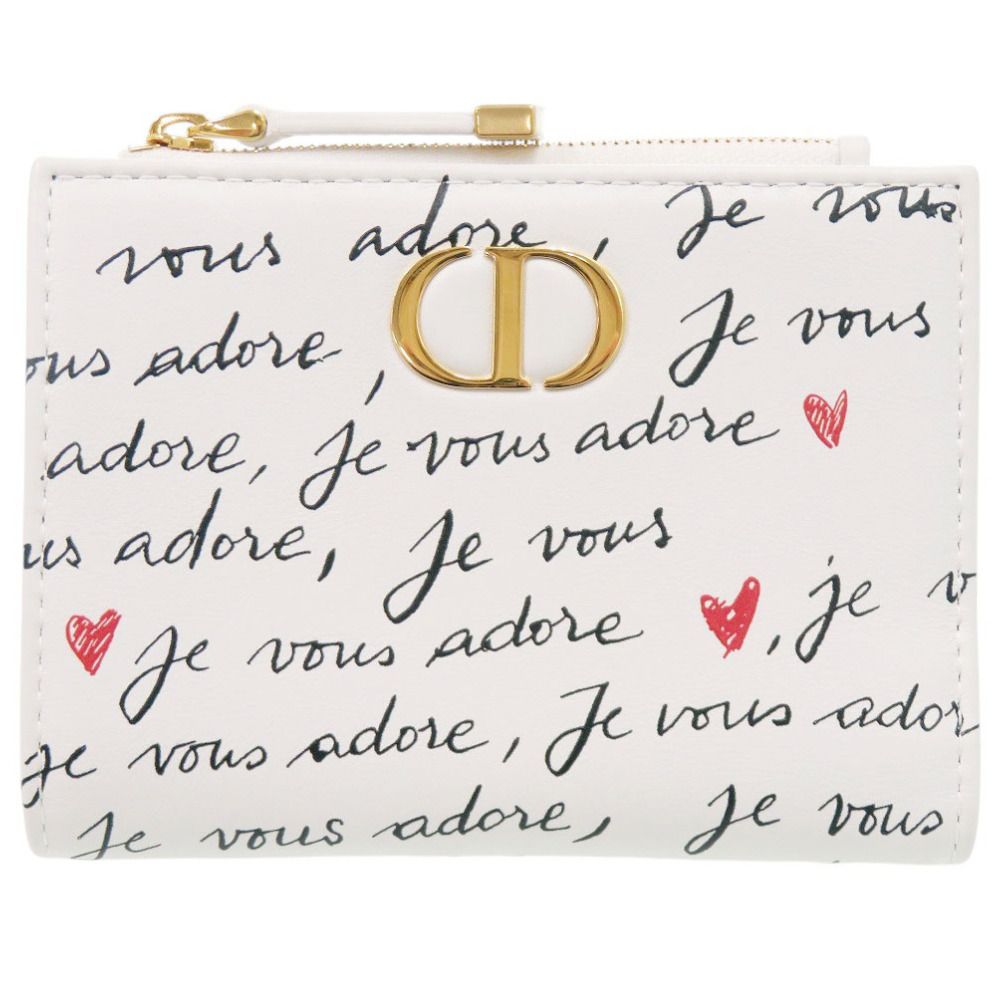 vous adore, Je vous
CD
ous adore, Je vous
adore, je vous adore
us adore, Je vous
Je vous adore, je v
je vous adore, Je vous ador
Je vous adore, Je vous